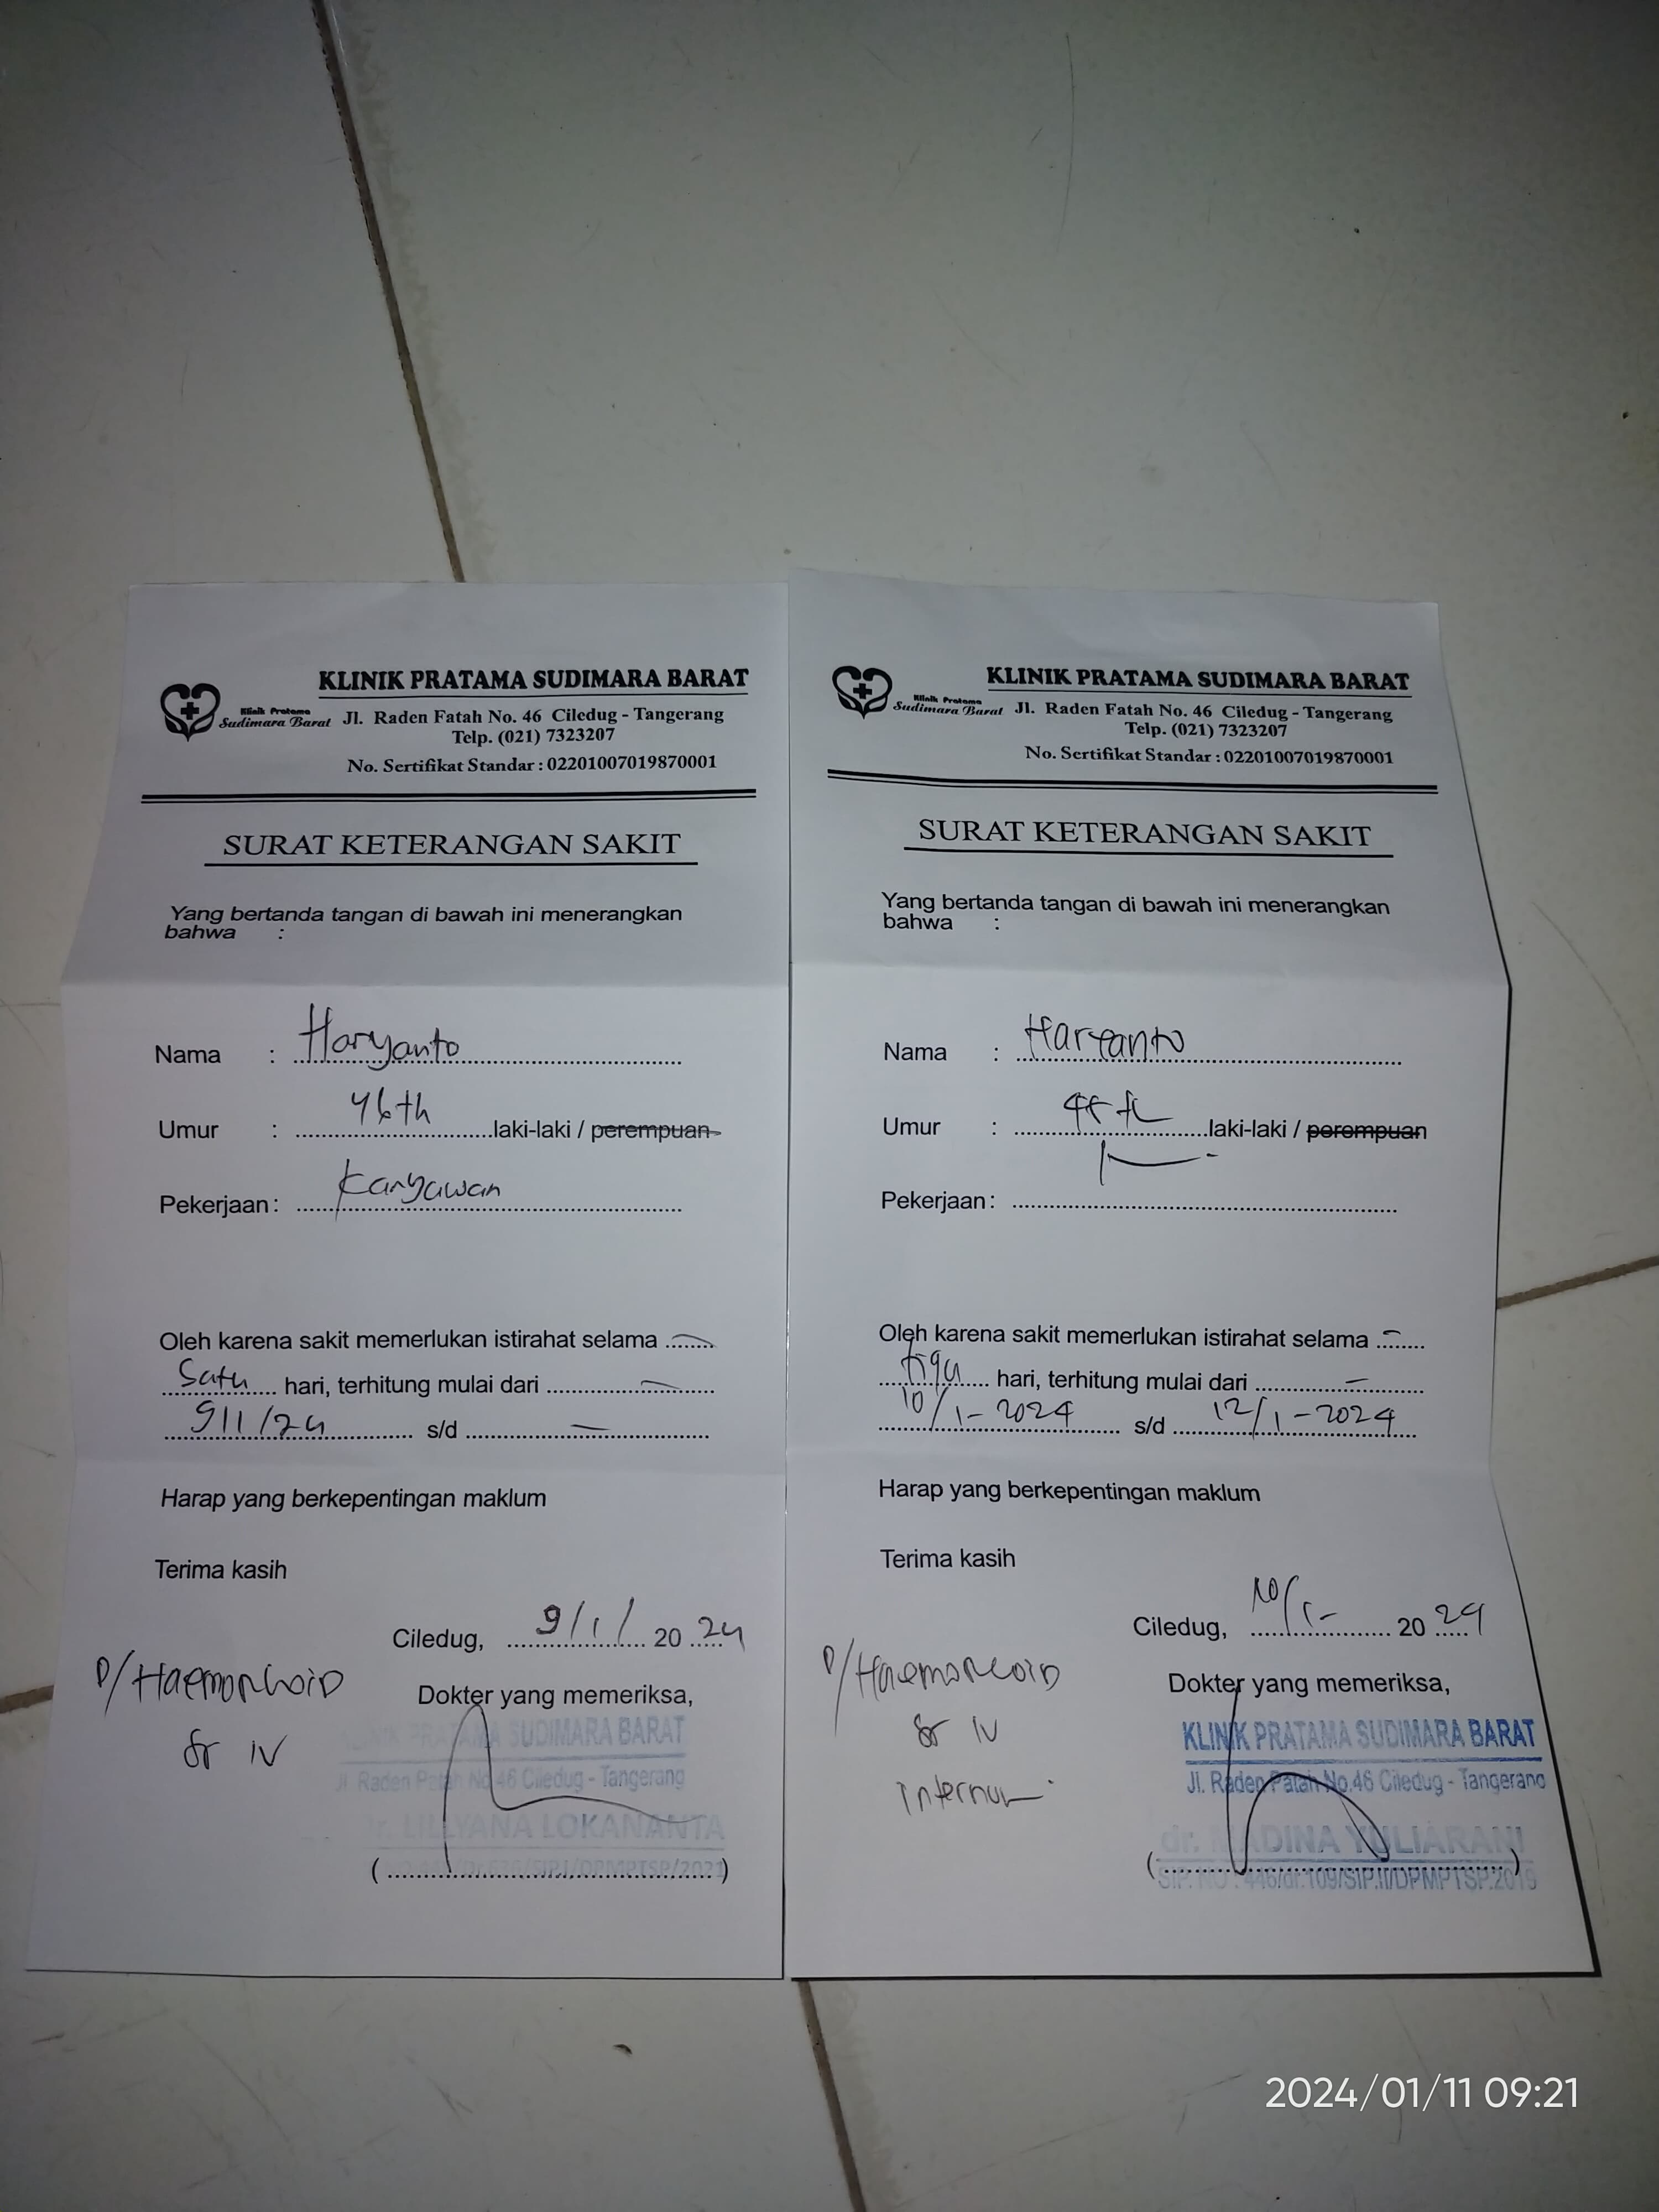 KLINIK PRATAMA SUDIMARA BARAT
Klinik Pratama
Sudimara Barat
Jl. Raden Fatah No. 46 Ciledug - Tangerang
Telp. (021) 7323207
No. Sertifikat Standar : 02201007019870001
SURAT KETERANGAN SAKIT
Yang bertanda tangan di bawah ini menerangkan
bahwa :
Nama : Haryanto
Umur : 46th laki-laki / perempuan
Pekerjaan : Karyawan
Oleh karena sakit memerlukan istirahat selama
Satu hari, terhitung mulai dari
9/1/24 s/d —
Harap yang berkepentingan maklum
Terima kasih
Ciledug, 9/1/ 2024
D/Haemorrhoid
Gr IV
Dokter yang memeriksa,
KLINIK PRATAMA SUDIMARA BARAT
Jl. Raden Patah No.46 Ciledug - Tangerang
dr. LILLYANA LOKANANTA
/DPMPTSP/2021
KLINIK PRATAMA SUDIMARA BARAT
Klinik Pratama
Sudimara Barat
Jl. Raden Fatah No. 46 Ciledug - Tangerang
Telp. (021) 7323207
No. Sertifikat Standar : 02201007019870001
SURAT KETERANGAN SAKIT
Yang bertanda tangan di bawah ini menerangkan
bahwa :
Nama : Haryanto
Umur : laki-laki / perempuan
Pekerjaan :
Oleh karena sakit memerlukan istirahat selama
tiga hari, terhitung mulai dari
10/1-2024 s/d 12/1-2024
Harap yang berkepentingan maklum
Terima kasih
Ciledug, 10/1- 2024
D/Haemorroid
Gr IV
Interna
Dokter yang memeriksa,
KLINIK PRATAMA SUDIMARA BARAT
Jl. Raden Patah No.46 Ciledug - Tangerang
dr. MADINA YULIARANI
SIP. NO : 446/dr.109/SIP.II/DPMPTSP.2019
2024/01/11 09:21